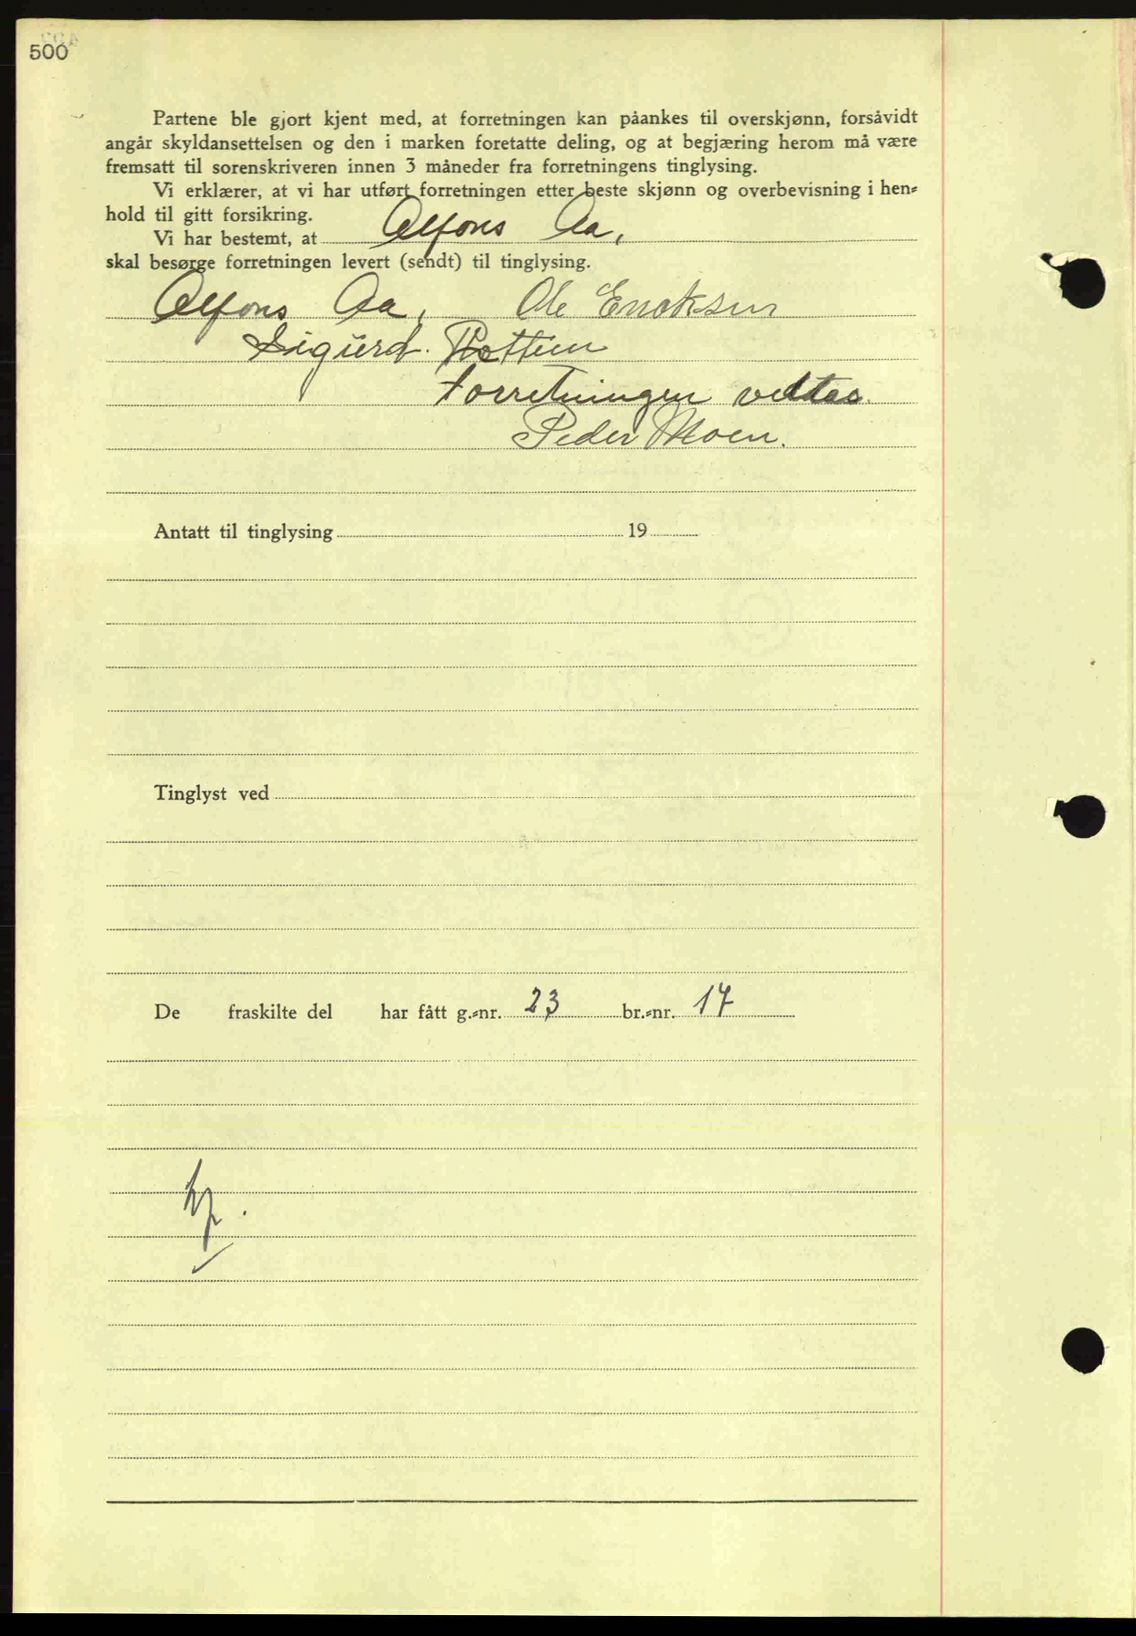 500
Partene ble gjort kjent med, at forretningen kan påankes til overskjønn, forsåvidt
angår skyldansettelsen og den i marken foretatte deling, og at begjæring herom må være
fremsatt til sorenskriveren innen 3 måneder fra forretningens tinglysing.
Vi erklærer, at vi har utført forretningen etter beste skjønn og overbevisning i hen-
hold til gitt forsikring.
Vi har bestemt, at Alfons Aa,
skal besørge forretningen levert (sendt) til tinglysing.
Alfons Aa, Ole Enoksen
Sigurd
Forretningen vedtas.
Peder Moen.
Antatt til tinglysing 19
Tinglyst ved
De fraskilte del har fått g.-nr. 23 br.-nr. 17